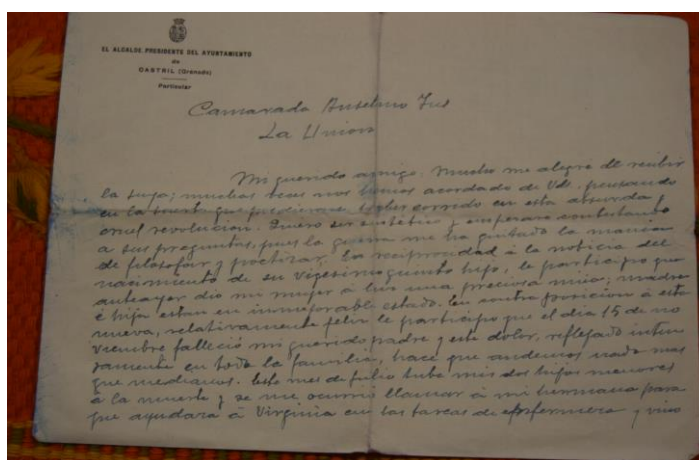 EL ALCALDE PRESIDENTE DEL AYUNTAMIENTO
de
CASTRIL (Granada)
Particular
Camarada Anselmo
La Union
Mi querido amigo. Mucho me alegre de recibir
la suya; muchas veces nos hemos acordado de Vds. pensando
en la suerte que pudieran haber corrido en esta absurda y
cruel revolucion. Quiero ser sintetico y empezar contestando
a sus preguntas, pues la guerra me ha quitado la mania
de filosofar y poetizar. En reciprocidad á la noticia del
nacimiento de su vigesimoquinto hijo, le participo que
anteayer dio mi mujer á luz una preciosa niña; madre
é hija estan en inmejorable estado. En contra posicion á esta
nueva, relativamente feliz le participo que el dia 15 de no
viembre falleció mi querido padre y este dolor, reflejado inten
samente en toda la familia, hace que andemos nada mas
que medianos. Este mes de Julio tube mis dos hijos menores
á la muerte y se me ocurrio llamar á mi hermana para
que ayudara á Virginia en las tareas de enfermera y vino